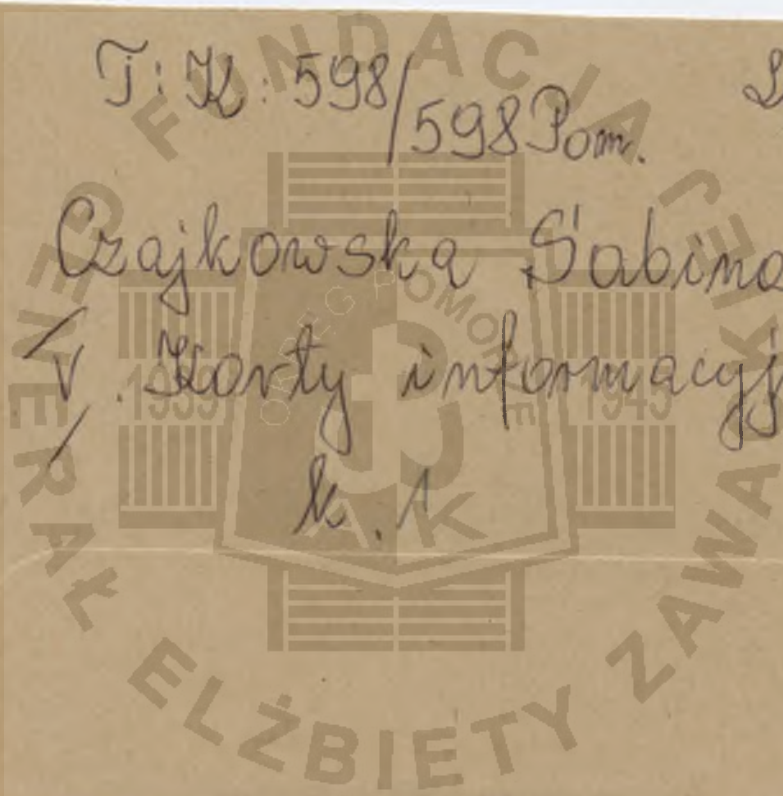 T: K: 598/598 Pom.
Czajkowska Sabina
V. Karty informacyj
k. 1
FUNDACJA GENERAŁ ELŻBIETY ZAWACKIEJ
OKRĘG POMORZE
1939 1945
AK